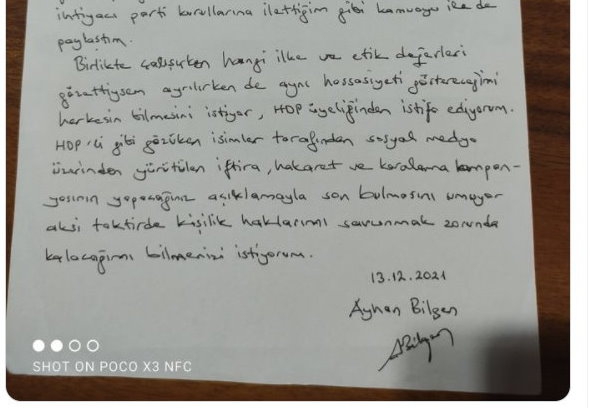 ihtiyacı parti kurullarına ilettiğim gibi kamuoyu ile de
paylaştım.
Birlikte çalışırken hangi ilke ve etik değerleri
gözettiysen ayrılırken de aynı hassasiyeti göstereceğimi
herkesin bilmesini istiyor, HDP üyeliğinden istifa ediyorum.
HDP'li gibi gözüken isimler tarafından sosyal medya
üzerinden yürütülen iftira, hakaret ve karalama kampan-
yasının yapacağınız açıklamayla son bulmasını umuyor
aksi taktirde kişilik haklarımı savunmak zorunda
kalacağımı bilmenizi istiyorum.
13.12.2021
Ayhan Bilgen
ABilgen
SHOT ON POCO X3 NFC